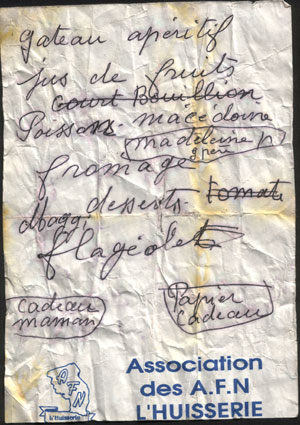 gateau apéritif
jus de fruits
Court Bouillion
Poisson macédoine
madeleine p
grère
fromage
desserts tomate
dbagg.
flageolet
cadeau
maman
Papier
Cadeau
A.F.N
L'Huisserie
Association
des A.F.N
L'HUISSERIE